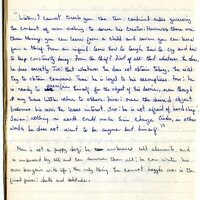 "Listen, I cannot teach you the ten cardinal rules governing
the conduct of man wishing to serve his creator. However there are
three things you can learn from a child and seven you can learn
from a thief. From an infant learn how to laugh, how to cry and how
to keep constantly busy. From the thief: First of all: that whatever he does,
he does secretly. Two: that whatever he does not obtain today, he will
try to obtain tomorrow. Three: he is loyal to his accomplices. Four: he
is ready to sacrifice himself for the object of his desires, even though
it may have little value to others. Five: once the desired object
becomes his own he loses interest. Six: he is not afraid of hardship.
Seven: nothing on earth could make him change trades, in other
words he does not want to be anyone but himself."
Man is not a puppy dog: he embraces all elements and
is empowered by all and can
own bargain with life; the only thing he cannot haggle over is the
final price: death and solitude.